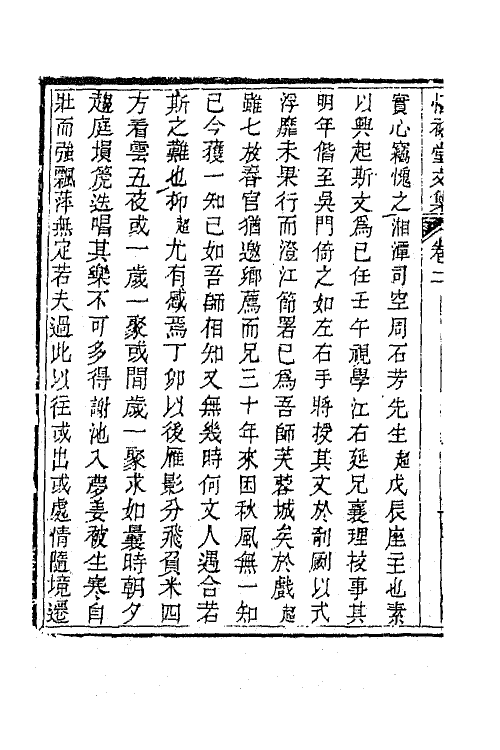 堂文集 卷二
實心竊愧之湘潭司空周石芳先生超戊辰座主也素
以興起斯文爲己任壬午視學江右延兄襄理校事其
明年偕至吳門倚之如左右手將授其文於剞劂以式
浮靡未果行而澄江節署已爲吾師芙蓉城矣於戲超
雖七放春官猶邀鄉薦而兄三十年來困秋風無一知
已今獲一知已如吾師相知又無幾時何文人遇合若
斯之難也抑超尤有感焉丁卯以後雁影分飛負米四
方看雲五夜或一歲一聚或間歲一聚求如曩時朝夕
趨庭塤箎迭唱其樂不可多得謝池入夢姜被生寒自
壯而強飄萍無定若夫過此以往或出或處情隨境遷